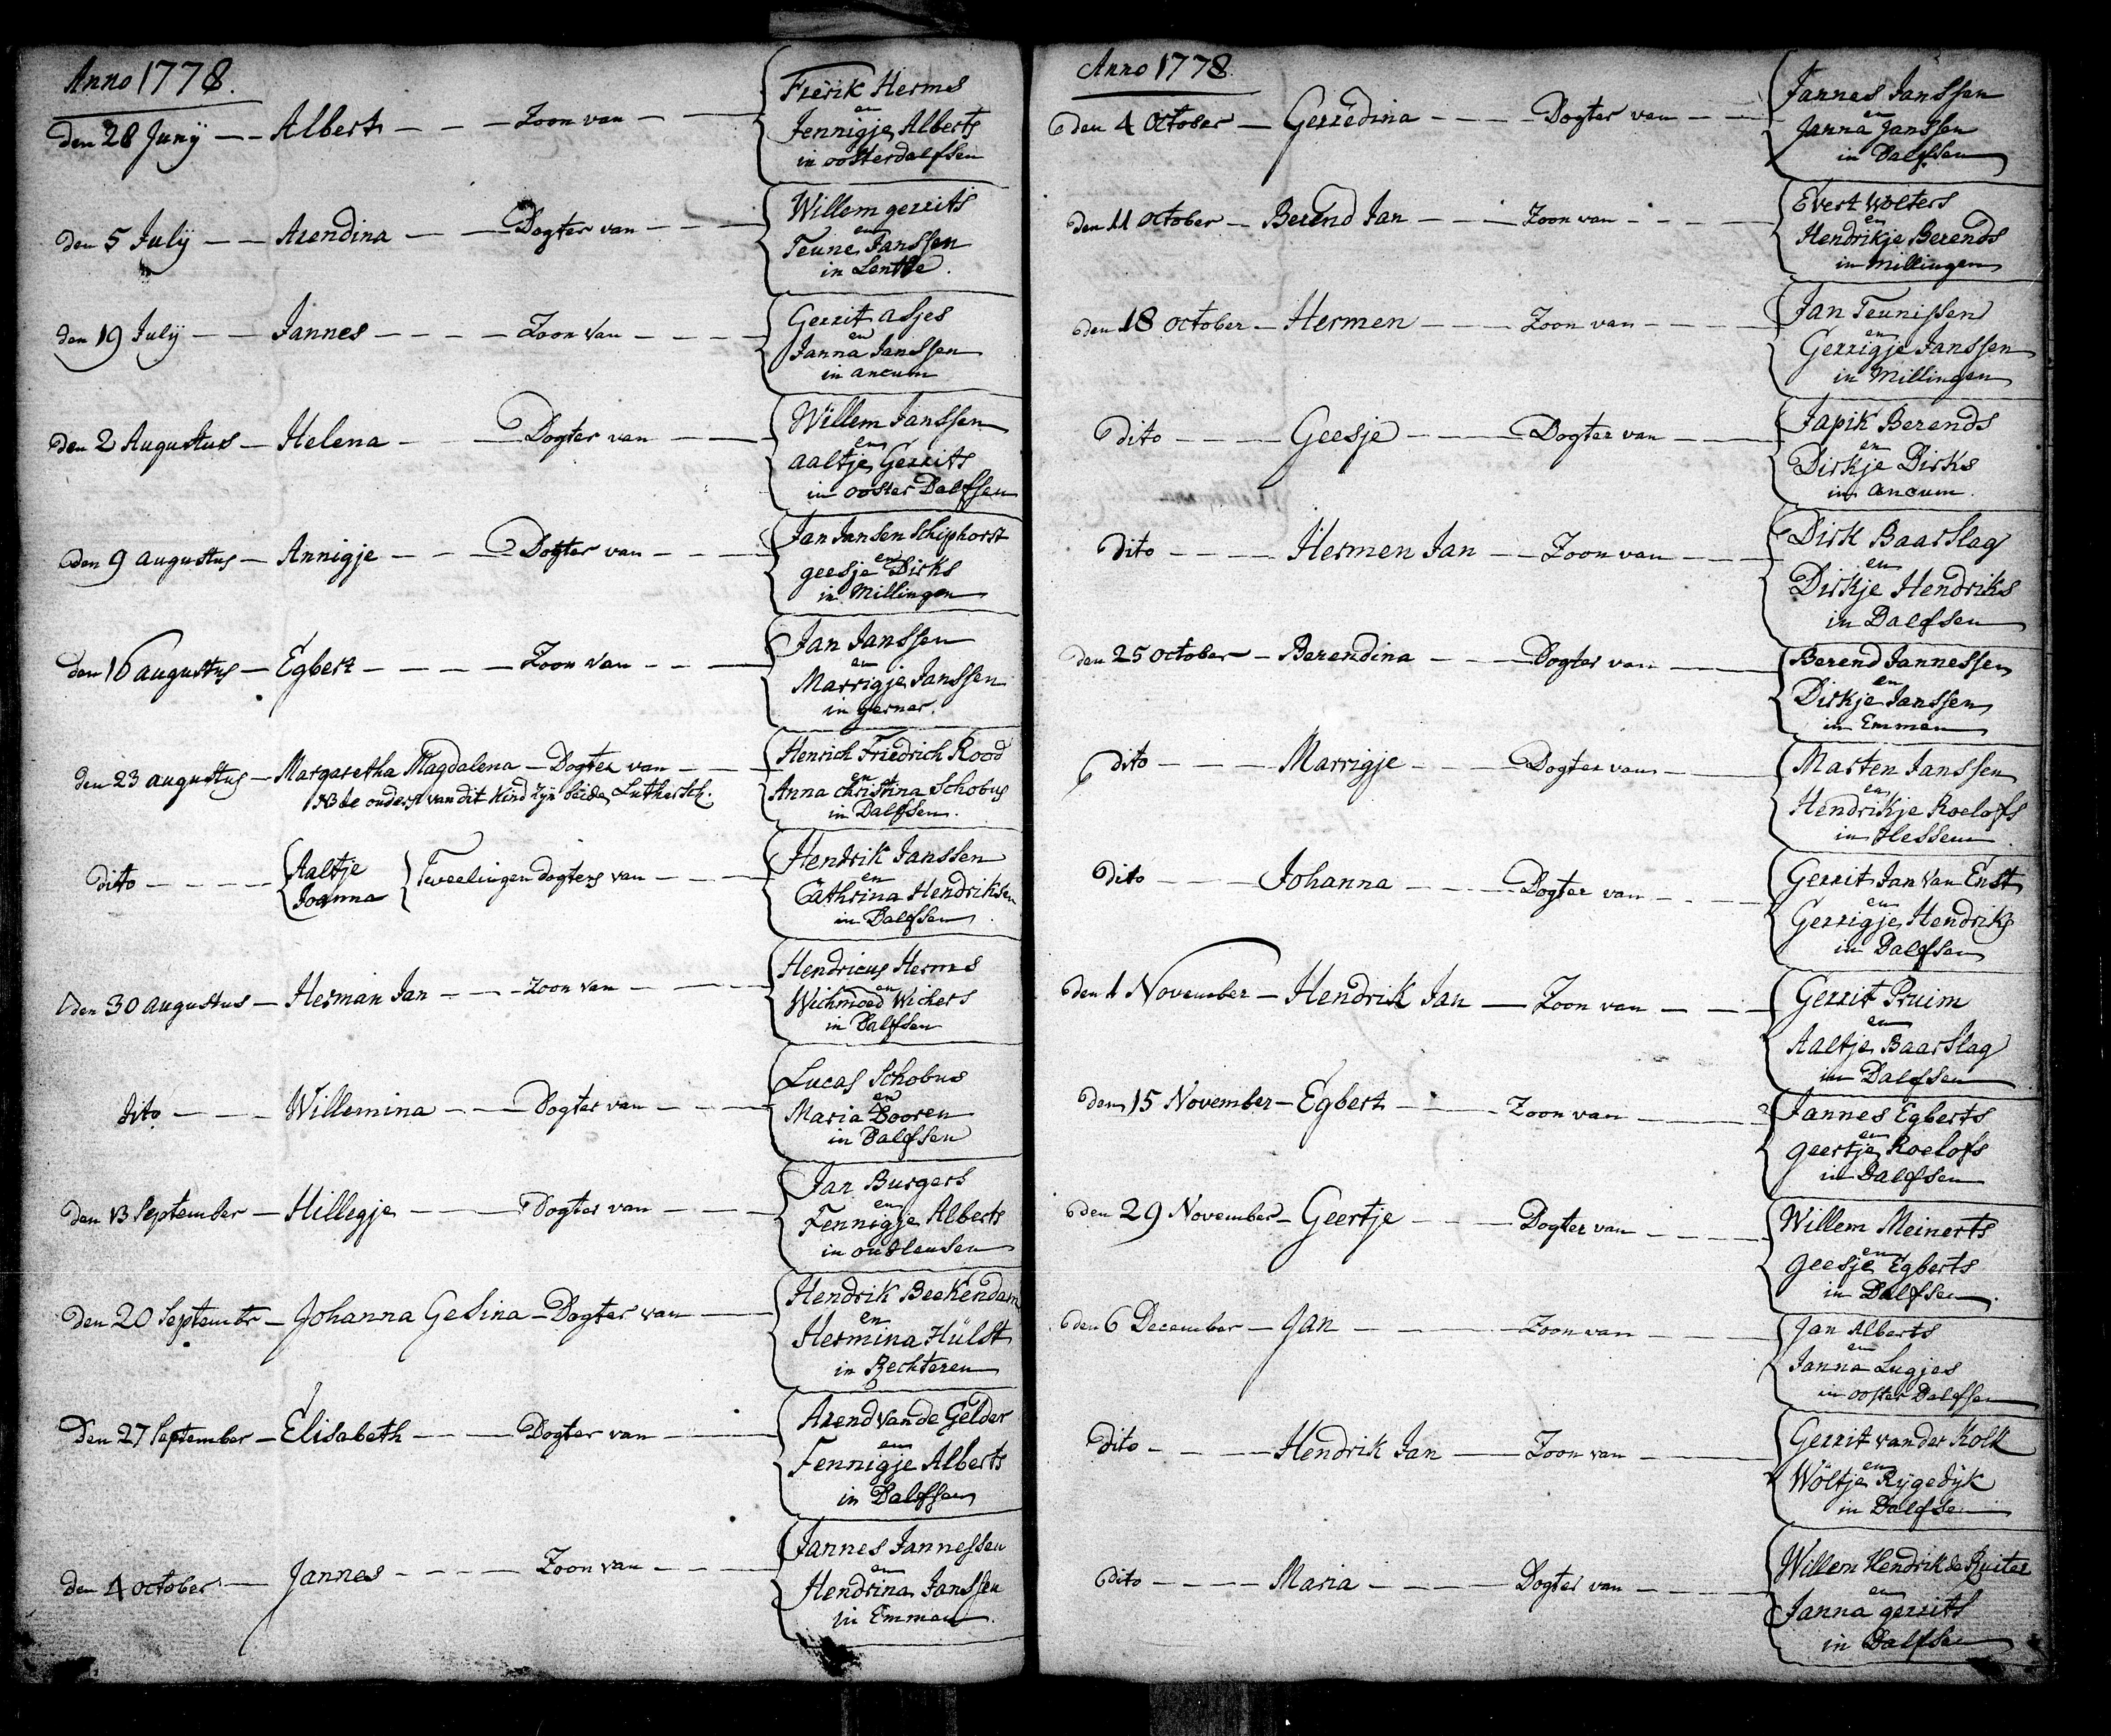 Anno 1778.
den 28 Junij — Albert — Zoon van — Frerik Herms
en
Jennigje Alberts
in oosterdalfsen
den 5 Julij — Arendina — Dogter van — Willem gerrits
en
Teune Janssen
in Lenthe.
den 19 Julij — Jannes — Zoon van — Gerrit asjes
en
Janna Janssen
in ancum
den 2 Augustus — Helena — Dogter van — Willem Janssen
en
aaltje Gerrits
in ooster Dalfsen
den 9 augustus — Annigje — Dogter van — Jan Jansen Schiphorst
en
geesje Dirks
in Millingen
den 16 augustus — Egbert — Zoon van — Jan Janssen
en
Marrigje Janssen
in gerner.
den 23 augustus — Margaretha Magdalena — Dogter van — Henrich Friedrich Rood
NB de ouders van dit kind zijn beide Luthersch.
en
Anna Christina Schobus
in Dalfsen.
dito — Aaltje
Joanna
Tweelingen dogters van — Hendrik Janssen
en
Cathrina Hendriksen
in Dalfsen
den 30 augustus — Herman Jan — Zoon van — Hendricus Herms
en
Wichmoed Wichers
in Dalfsen
dito — Willemina — Dogter van — Lucas Schobus
en
Maria Dooren
in Dalfsen
den 13 September — Hillegje — Dogter van — Jan Burgers
en
Fennigje Alberts
in oudleusen
den 20 Septembr — Johanna Gesina — Dogter van — Hendrik Beekendam
en
Hermina Hülst
in Rechteren
Den 27 September — Elisabeth — Dogter van — Arend van de Gelder
en
Fennigje Alberts
in Dalfsen
den 4 october — Jannes — Zoon van — Jannes Jannessen
en
Hendrina Janssen
in Emmen.
Anno 1778.
den 4 October — Gerredina — Dogter van — Jannes Janssen
en
Janna Janssen
in Dalfsen
den 11 october — Berend Jan — Zoon van — Evert Wolters
en
Hendrikje Berends
in Millingen
den 18 october — Hermen — Zoon van — Jan Teunissen
en
Gerrigje Janssen
in Millingen
dito — Geesje — Dogter van — Japik Berends
en
Dirkje Dirks
in ancum.
dito — Hermen Jan — Zoon van — Dirk Baarslag
en
Dirkje Hendriks
in Dalfsen
den 25 october — Berendina — Dogter van — Berend Jannessen
en
Dirkje Janssen
in Emmen
dito — Marrigje — Dogter van — Marten Janssen
en
Hendrikje Roelofs
in Hessum
dito — Johanna — Dogter van — Gerrit Jan van Enst
en
Gerrigje Hendriks
in Dalfsen
den 1 November — Hendrik Jan — Zoon van — Gerrit Pruim
en
Aaltje Baarslag
in Dalfsen
den 15 November — Egbert — Zoon van — Jannes Egberts
en
geertje Roelofs
in Dalfsen
den 29 November — Geertje — Dogter van — Willem Meinerts
en
geesje Egberts
in Dalfsen.
den 6 December — Jan — Zoon van — Jan Alberts
en
Janna Lugjes
in ooster Dalfsen
dito — Hendrik Jan — Zoon van — Gerrit van der Kolk
en
Wöltje Rijgedijk
in Dalfsen
dito — Maria — Dogter van — Willem Hendrik de Ruiter
en
Janna gerrits
in Dalfsen